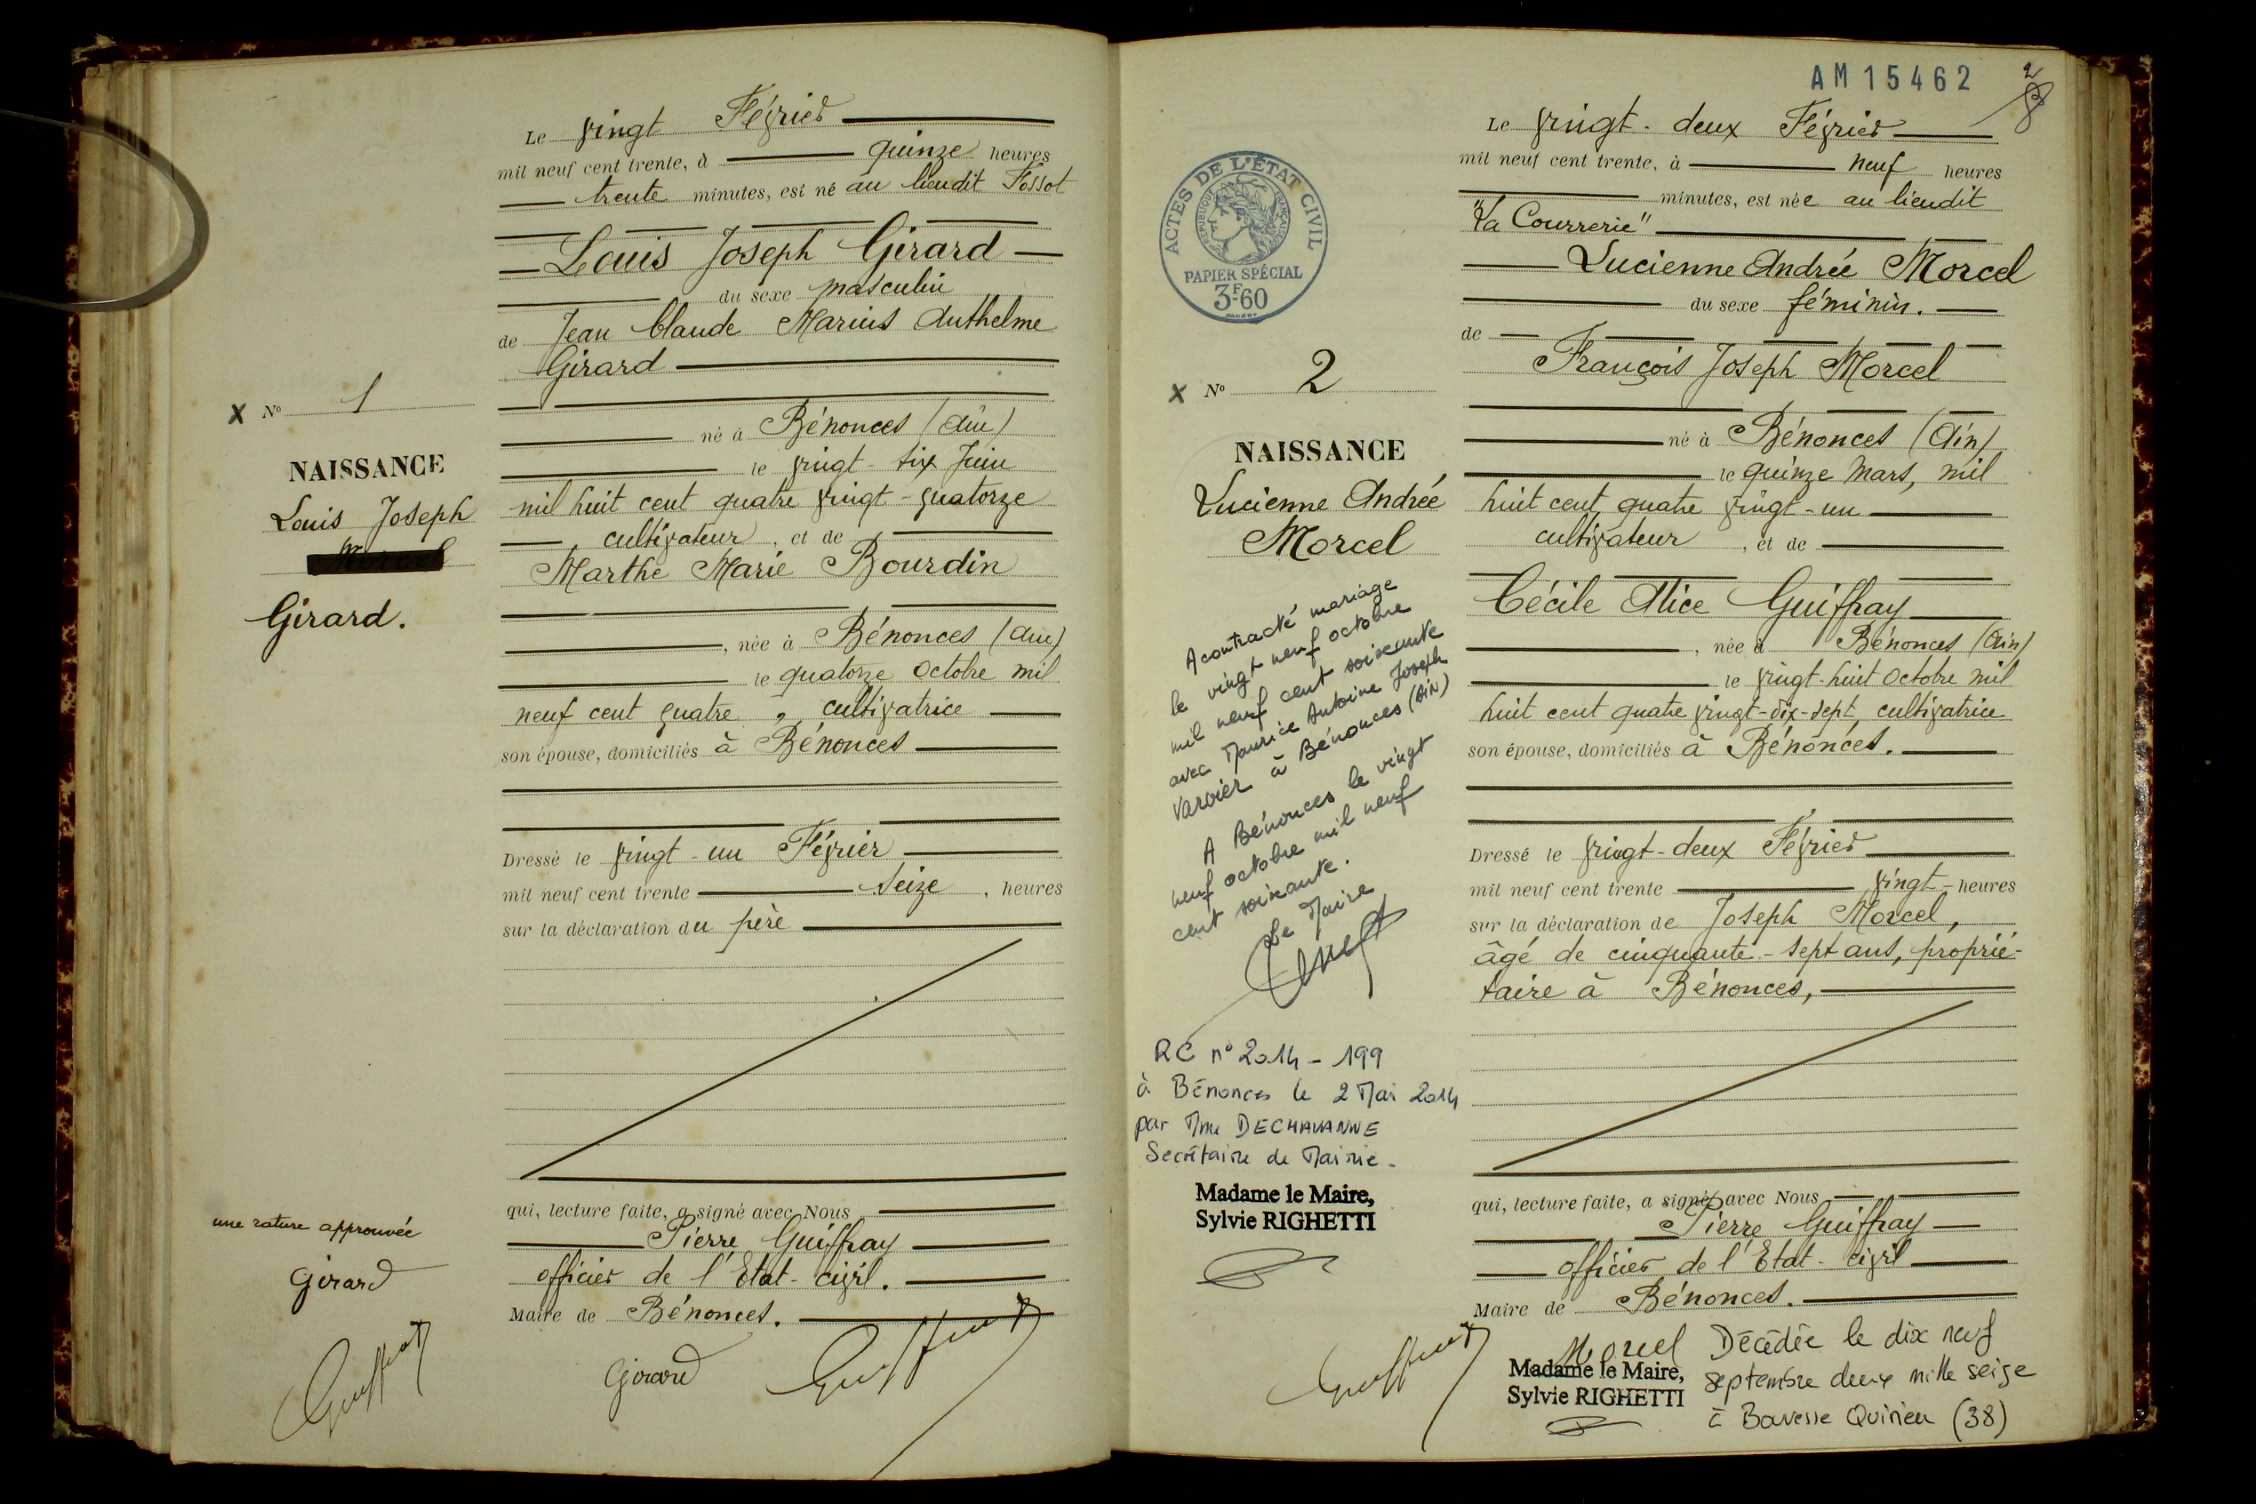 Le vingt Février
mil neuf cent trente, à quinze heures
trente minutes, est né au lieudit Fossot
Louis Joseph Girard
du sexe masculin
de Jean Claude Marius Anthelme
Girard
né à Bénonces (Ain)
le vingt-six Juin
mil huit cent quatre vingt-quatorze
cultivateur, et de
Marthe Marie Bourdin
, née à Bénonces (Ain)
le quatorze Octobre mil
neuf cent quatre, cultivatrice
son épouse, domiciliés à Bénonces
Dressé le vingt-un Février
mil neuf cent trente seize, heures
sur la déclaration du père
qui, lecture faite, a signé avec Nous
Pierre Guiffray
officier de l'Etat-civil.
Maire de Bénonces.
Girard
x No 1
NAISSANCE
Louis Joseph
Morcel
Girard.
une rature approuvée
Girard
AM 15462
2
Le vingt-deux Février
mil neuf cent trente, à neuf heures
minutes, est née au lieudit
"La Courrerie"
Lucienne Andrée Morcel
du sexe féminin.
de
François Joseph Morcel
né à Bénonces (Ain)
le quinze Mars, mil
huit cent quatre vingt-un
cultivateur, et de
Cécile Alice Guiffray
, née à Bénonces (Ain)
le vingt-huit Octobre mil
huit cent quatre vingt-dix-sept, cultivatrice
son épouse, domiciliés à Bénonces.
Dressé le vingt-deux Février
mil neuf cent trente vingt heures
sur la déclaration de Joseph Morcel,
âgé de cinquante-sept ans, proprié-
taire à Bénonces,
qui, lecture faite, a signé avec Nous
Pierre Guiffray
officier de l'Etat-civil
Maire de Bénonces.
Morcel
Madame le Maire,
Sylvie RIGHETTI
Décédée le dix neuf
septembre deux mille seize
à Bouvesse Quirieu (38)
ACTES DE L'ÉTAT CIVIL
RÉPUBLIQUE FRANÇAISE
PAPIER SPÉCIAL
3F.60
x No 2
NAISSANCE
Lucienne Andrée
Morcel
A contracté mariage
le vingt neuf octobre
mil neuf cent soixante
avec Maurice Antoine Joseph
Varvier à Bénonces (Ain)
A Bénonces le vingt
neuf octobre mil neuf
cent soixante.
Le Maire
RC n° 2014-199
à Bénonces le 2 Mai 2014
par Mme DECHAVANNE
Secrétaire de Mairie.
Madame le Maire,
Sylvie RIGHETTI